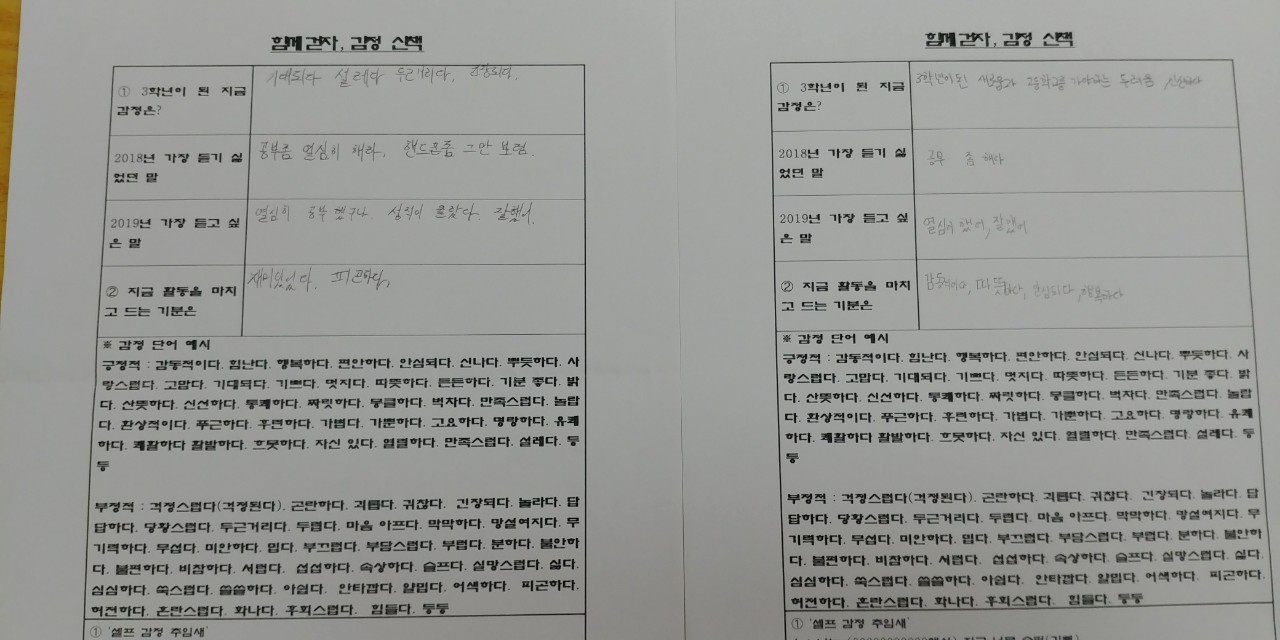 함께 걷자, 감정 산책
① 3학년이 된 지금
감정은?
기대되다 설레다 두근거리다. 긴장되다.
2018년 가장 듣기 싫
었던 말
공부좀 열심히 해라, 핸드폰좀 그만 보렴.
2019년 가장 듣고 싶
은 말
열심히 공부 했구나. 성적이 올랐다. 잘했어.
② 지금 활동을 마치
고 드는 기분은
재미있었다, 피곤하다,
※ 감정 단어 예시
긍정적 : 감동적이다. 힘난다. 행복하다. 편안하다. 안심되다. 신나다. 뿌듯하다. 사
랑스럽다. 고맙다. 기대되다. 기쁘다. 멋지다. 따뜻하다. 든든하다. 기분 좋다. 밝
다. 산뜻하다. 신선하다. 통쾌하다. 짜릿하다. 뭉클하다. 벅차다. 만족스럽다. 놀랍
다. 환상적이다. 푸근하다. 후련하다. 가볍다. 가뿐하다. 고요하다. 명랑하다. 유쾌
하다. 쾌활하다 활발하다. 흐뭇하다. 자신 있다. 열렬하다. 만족스럽다. 설레다. 등
등
부정적 : 걱정스럽다(걱정된다). 곤란하다. 괴롭다. 귀찮다. 긴장되다. 놀라다. 답
답하다. 당황스럽다. 두근거리다. 두렵다. 마음 아프다. 막막하다. 망설여지다. 무
기력하다. 무섭다. 미안하다. 밉다. 부끄럽다. 부담스럽다. 부럽다. 분하다. 불안하
다. 불편하다. 비참하다. 서럽다. 섭섭하다. 속상하다. 슬프다. 실망스럽다. 싫다.
심심하다. 쑥스럽다. 쓸쓸하다. 아쉽다. 안타깝다. 얄밉다. 어색하다. 피곤하다.
허전하다. 혼란스럽다. 화나다. 후회스럽다. 힘들다. 등등
① '셀프 감정 추임새'
함께 걷자, 감정 산책
① 3학년이 된 지금
감정은?
3학년이 된 새로움과 고등학교를 가야하는 두려움
2018년 가장 듣기 싫
었던 말
공부 좀 해라
2019년 가장 듣고 싶
은 말
열심히 했어, 잘했어
② 지금 활동을 마치
고 드는 기분은
감동적이다, 따뜻하다, 안심되다, 행복하다
※ 감정 단어 예시
긍정적 : 감동적이다. 힘난다. 행복하다. 편안하다. 안심되다. 신나다. 뿌듯하다. 사
랑스럽다. 고맙다. 기대되다. 기쁘다. 멋지다. 따뜻하다. 든든하다. 기분 좋다. 밝
다. 산뜻하다. 신선하다. 통쾌하다. 짜릿하다. 뭉클하다. 벅차다. 만족스럽다. 놀랍
다. 환상적이다. 푸근하다. 후련하다. 가볍다. 가뿐하다. 고요하다. 명랑하다. 유쾌
하다. 쾌활하다 활발하다. 흐뭇하다. 자신 있다. 열렬하다. 만족스럽다. 설레다. 등
등
부정적 : 걱정스럽다(걱정된다). 곤란하다. 괴롭다. 귀찮다. 긴장되다. 놀라다. 답
답하다. 당황스럽다. 두근거리다. 두렵다. 마음 아프다. 막막하다. 망설여지다. 무
기력하다. 무섭다. 미안하다. 밉다. 부끄럽다. 부담스럽다. 부럽다. 분하다. 불안하
다. 불편하다. 비참하다. 서럽다. 섭섭하다. 속상하다. 슬프다. 실망스럽다. 싫다.
심심하다. 쑥스럽다. 쓸쓸하다. 아쉽다. 안타깝다. 얄밉다. 어색하다. 피곤하다.
허전하다. 혼란스럽다. 화나다. 후회스럽다. 힘들다. 등등
① '셀프 감정 추임새'